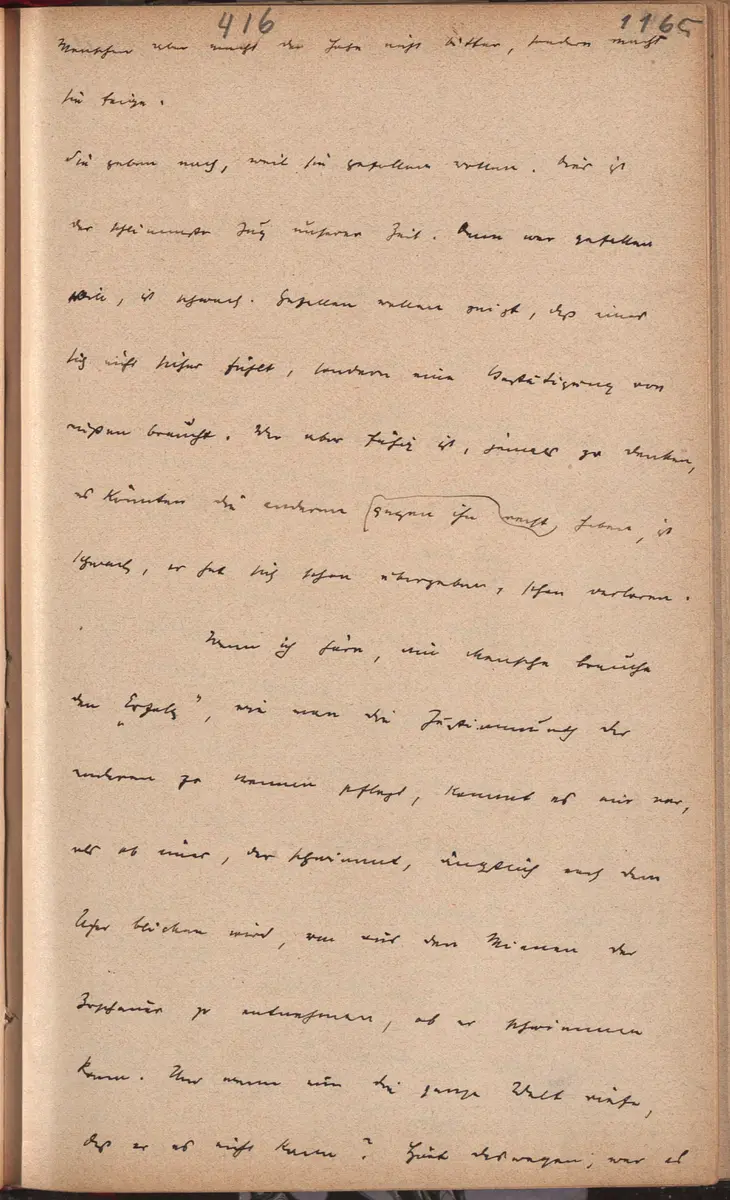 416 1165
Menschen aber macht der Hass nicht bitter, sondern macht
sie feige.
Sie geben nach, weil sie gefallen wollen. Dies ist
der schlimmste Zug unserer Zeit. Denn wer gefallen
will, ist schwach. Gefallen wollen zeigt, daß einer
sich nicht sicher fühlt, sondern eine Bestätigung von
außen braucht. Wer aber fähig ist, jemals zu denken,
es könnten die anderen gegen ihn recht haben, ist
schwach, er hat sich schon übergeben, schon verloren.
Wenn ich höre, ein Mensch brauche
den „Erfolg“, wie man die Zustimmung der
anderen zu nennen pflegt, kommt es mir vor,
als ob einer, der schwimmt, ängstlich nach dem
Ufer blicken wird, um aus den Mienen der
Zuschauer zu entnehmen, ob er schwimmen
kann. Und wenn nun die ganze Welt riefe,
daß er es nicht kann? Geht deswegen, wer es